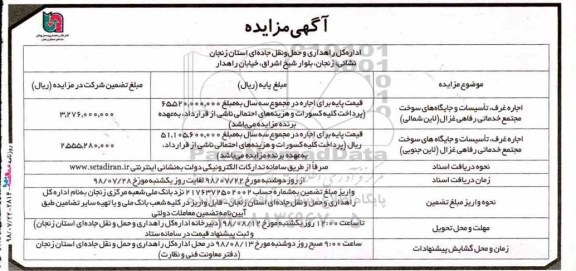 آگهی مزایده
اداره کل راهداری و حمل و نقل جاده‌ای استان زنجان
نشانی: زنجان، بلوار شیخ اشراق، خیابان راهدار
موضوع مزایده
مبلغ پایه (ریال)
مبلغ تضمین شرکت در مزایده (ریال)
اجاره غرف، تأسیسات و جایگاه‌های سوخت
مجتمع خدماتی رفاهی غزال (لاین شمالی)
قیمت پایه برای اجاره در مجموع سه سال به‌مبلغ ۶۵،۵۲۰،۰۰۰،۰۰۰
(پرداخت کلیه کسورات و هزینه‌های احتمالی ناشی از قرارداد، به‌عهده
برنده مزایده می‌باشد)
۳،۲۷۶،۰۰۰،۰۰۰
اجاره غرف، تأسیسات و جایگاه های سوخت
مجتمع خدماتی رفاهی غزال (لاین جنوبی)
قیمت پایه برای اجاره در مجموع سه سال به‌مبلغ ۵۱،۱۰۵،۶۰۰،۰۰۰
ریال (پرداخت کلیه کسورات و هزینه‌های احتمالی ناشی از قرارداد،
به‌عهده برنده مزایده می‌باشد)
۲،۵۵۵،۲۸۰،۰۰۰
نحوه دریافت اسناد
صرفا از طریق سامانه تدارکات الکترونیکی دولت به‌نشانی اینترنتی www.setadiran.ir
زمان دریافت اسناد
از روز دوشنبه مورخ ۹۸/۰۷/۲۲ لغایت روز یکشنبه مورخ ۹۸/۰۷/۲۸
نحوه واریز مبلغ تضمین
واریز مبلغ تضمین به‌شماره حساب ۲۱۷۶۳۷۲۵۰۲۰۰۲ نزد بانک ملی شعبه مرکزی زنجان به‌نام اداره کل
راهداری و حمل و نقل جاده‌ای استان زنجان - قابل واریز در کلیه شعب بانک ملی و یا تهیه سایر تضامین طبق
آیین‌نامه تضمین معاملات دولتی
مهلت و محل تحویل
تا ساعت ۱۴:۰۰ روز یکشنبه مورخ ۹۸/۰۸/۱۲ (دبیرخانه اداره کل راهداری و حمل و نقل جاده‌ای استان زنجان)
و ثبت پیشنهاد قیمت در سامانه ستاد
زمان و محل گشایش پیشنهادات
ساعت ۹:۰۰ صبح روز دوشنبه مورخ ۹۸/۰۸/۱۳ در محل اداره کل راهداری و حمل و نقل جاده‌ای استان زنجان
(دفتر معاونت فنی و نظارت)